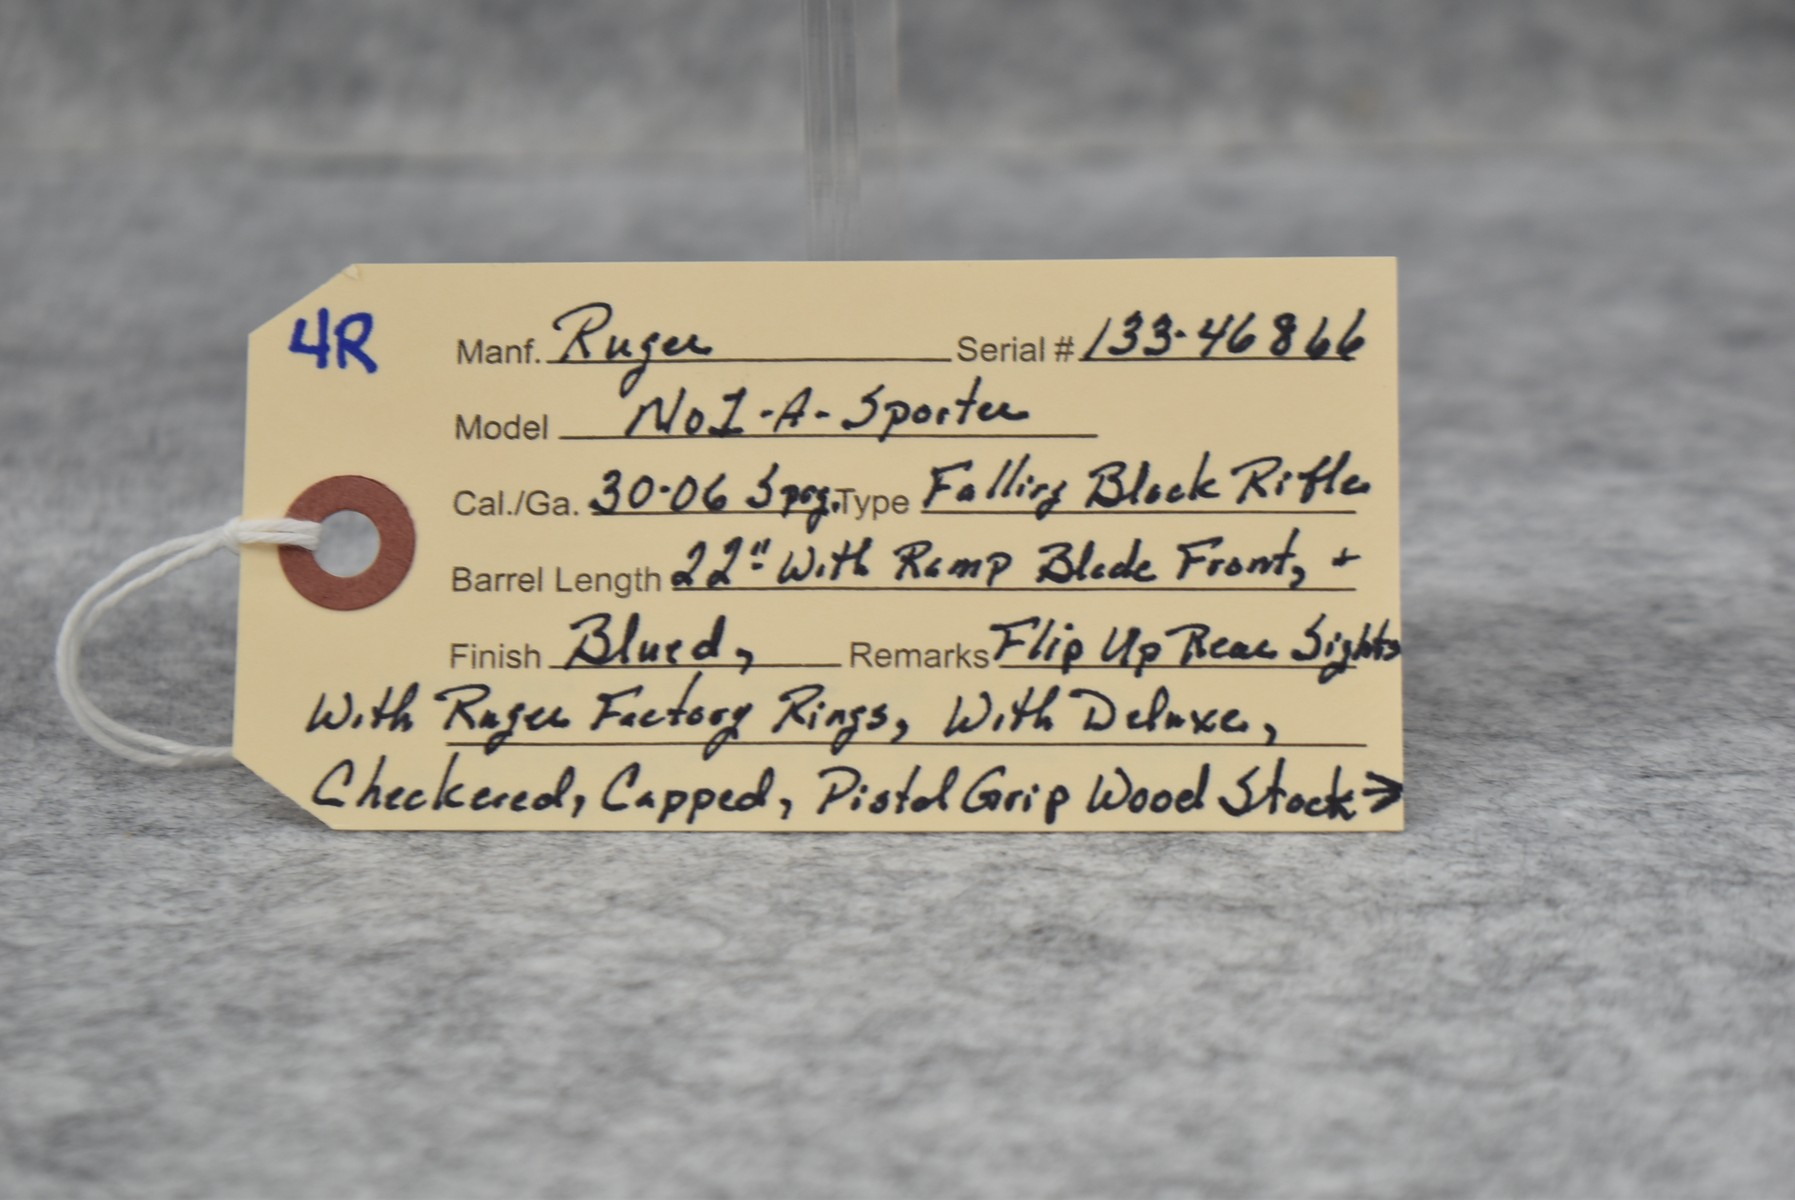 4R
Manf. Ruger Serial # 133-46866
Model No1-A-Sporter
Cal./Ga. 30-06 Sprg. Type Falling Block Rifle
Barrel Length 22" With Ramp Blade Front, +
Finish Blued, Remarks Flip Up Rear Sights
With Ruger Factory Rings, With Deluxe,
Checkered, Capped, Pistol Grip Wood Stock →